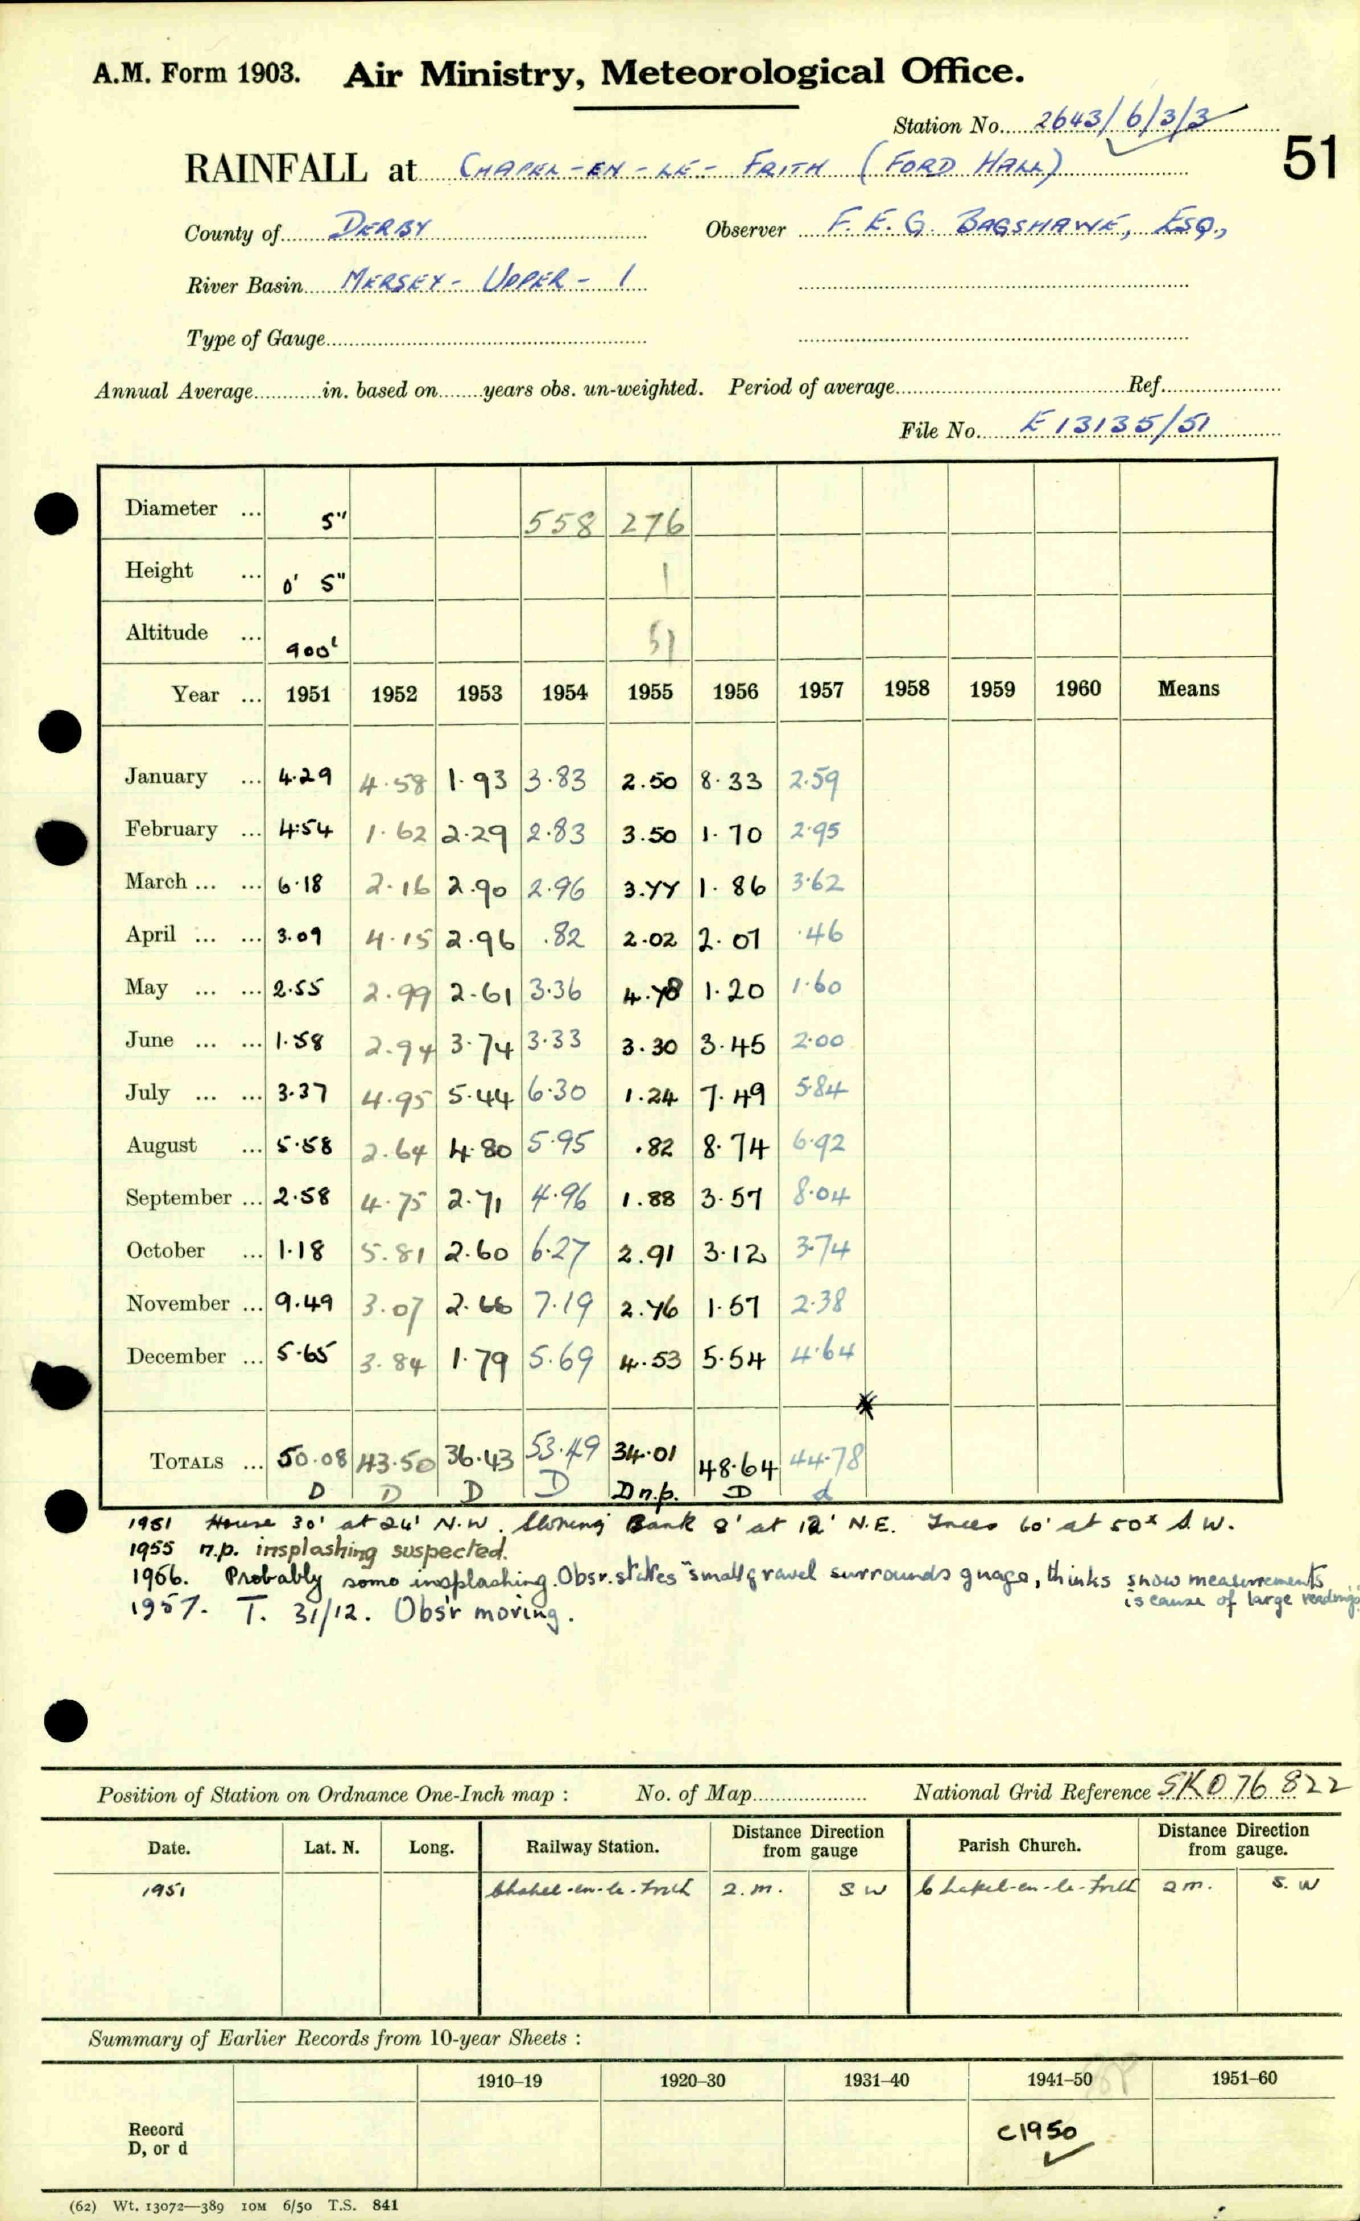 A.M. Form 1903. Air Ministry, Meteorological Office.
Station No. 2643/6/3/3
51
RAINFALL at CHAPEL-EN-LE-FRITH (FORD HALL)
County of DERBY Observer F. E. G. BAGSHAWE, ESQ.,
River Basin MERSEY - UPPER - 1
Type of Gauge
Annual Average in. based on years obs. un-weighted. Period of average Ref.
File No. E 13135/51
Diameter ... 5" 558 276
Height ... 0' 5" 1
Altitude ... 900' 51
Year ... 1951 1952 1953 1954 1955 1956 1957 1958 1959 1960 Means
January ... 4.29 4.58 1.93 3.83 2.50 8.33 2.59
February ... 4.54 1.62 2.29 2.83 3.50 1.70 2.95
March ... ... 6.18 2.16 2.90 2.96 3.77 1.86 3.62
April ... ... 3.09 4.15 2.96 .82 2.02 2.07 .46
May ... ... 2.55 2.99 2.61 3.36 4.78 1.20 1.60
June ... ... 1.58 2.94 3.74 3.33 3.30 3.45 2.00
July ... ... 3.37 4.95 5.44 6.30 1.24 7.49 5.84
August ... 5.58 2.64 4.80 5.95 .82 8.74 6.92
September ... 2.58 4.75 2.71 4.96 1.88 3.57 8.04
October ... 1.18 5.81 2.60 6.27 2.91 3.12 3.74
November ... 9.49 3.07 2.66 7.19 2.76 1.57 2.38
December ... 5.65 3.84 1.79 5.69 4.53 5.54 4.64
TOTALS ... 50.08 43.50 36.43 53.49 34.01 48.64 44.78
D D D D D n.p. D d
1951 House 30' at 24' N.W. Sloping Bank 8' at 12' N.E. Trees 60' at 50x S.W.
1955 n.p. insplashing suspected.
1956. Probably some insplashing. Obsr. states small gravel surrounds guage, thinks snow measurements
is cause of large readings.
1957. T. 31/12. Obs'r moving.
Position of Station on Ordnance One-Inch map : No. of Map National Grid Reference SK 076 822
Date. Lat. N. Long. Railway Station. Distance Direction from gauge Parish Church. Distance Direction from gauge.
1951 Chapel-en-le-Frith 2.m. S W Chapel-en-le-Frith 2m. S. W
Summary of Earlier Records from 10-year Sheets :
1910–19 1920–30 1931–40 1941–50 1951–60
Record
D, or d
c1950
(62) Wt. 13072—389 10M 6/50 T.S. 841